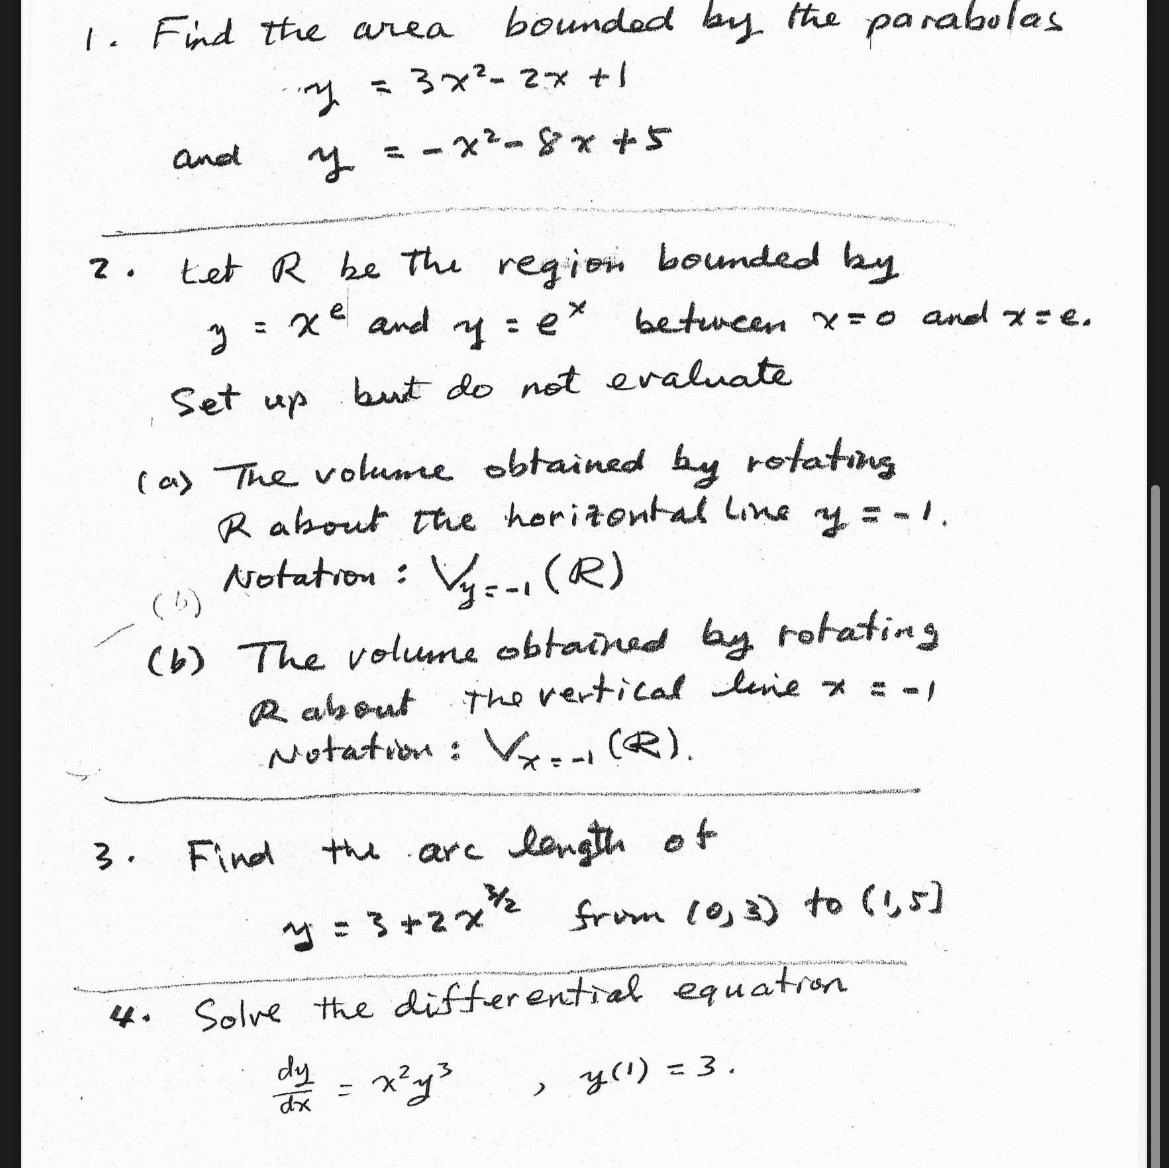 1. Find the area bounded by the parabolas
y = 3x²- 2x +1
and y = - x²- 8x + 5
2. Let R be the region bounded by
y = xᵉ and y = eˣ between x=0 and x=e.
Set up but do not evaluate
(a) The volume obtained by rotating
R about the horizontal line y = -1.
Notation : V_{y=-1}(R)
(b)
(b) The volume obtained by rotating
R about the vertical line x = -1
Notation : V_{x=-1}(R).
3. Find the arc length of
y = 3 + 2x^{3/2} from (0,3) to (1,5]
4. Solve the differential equation
dy/dx = x²y³ , y(1) = 3.